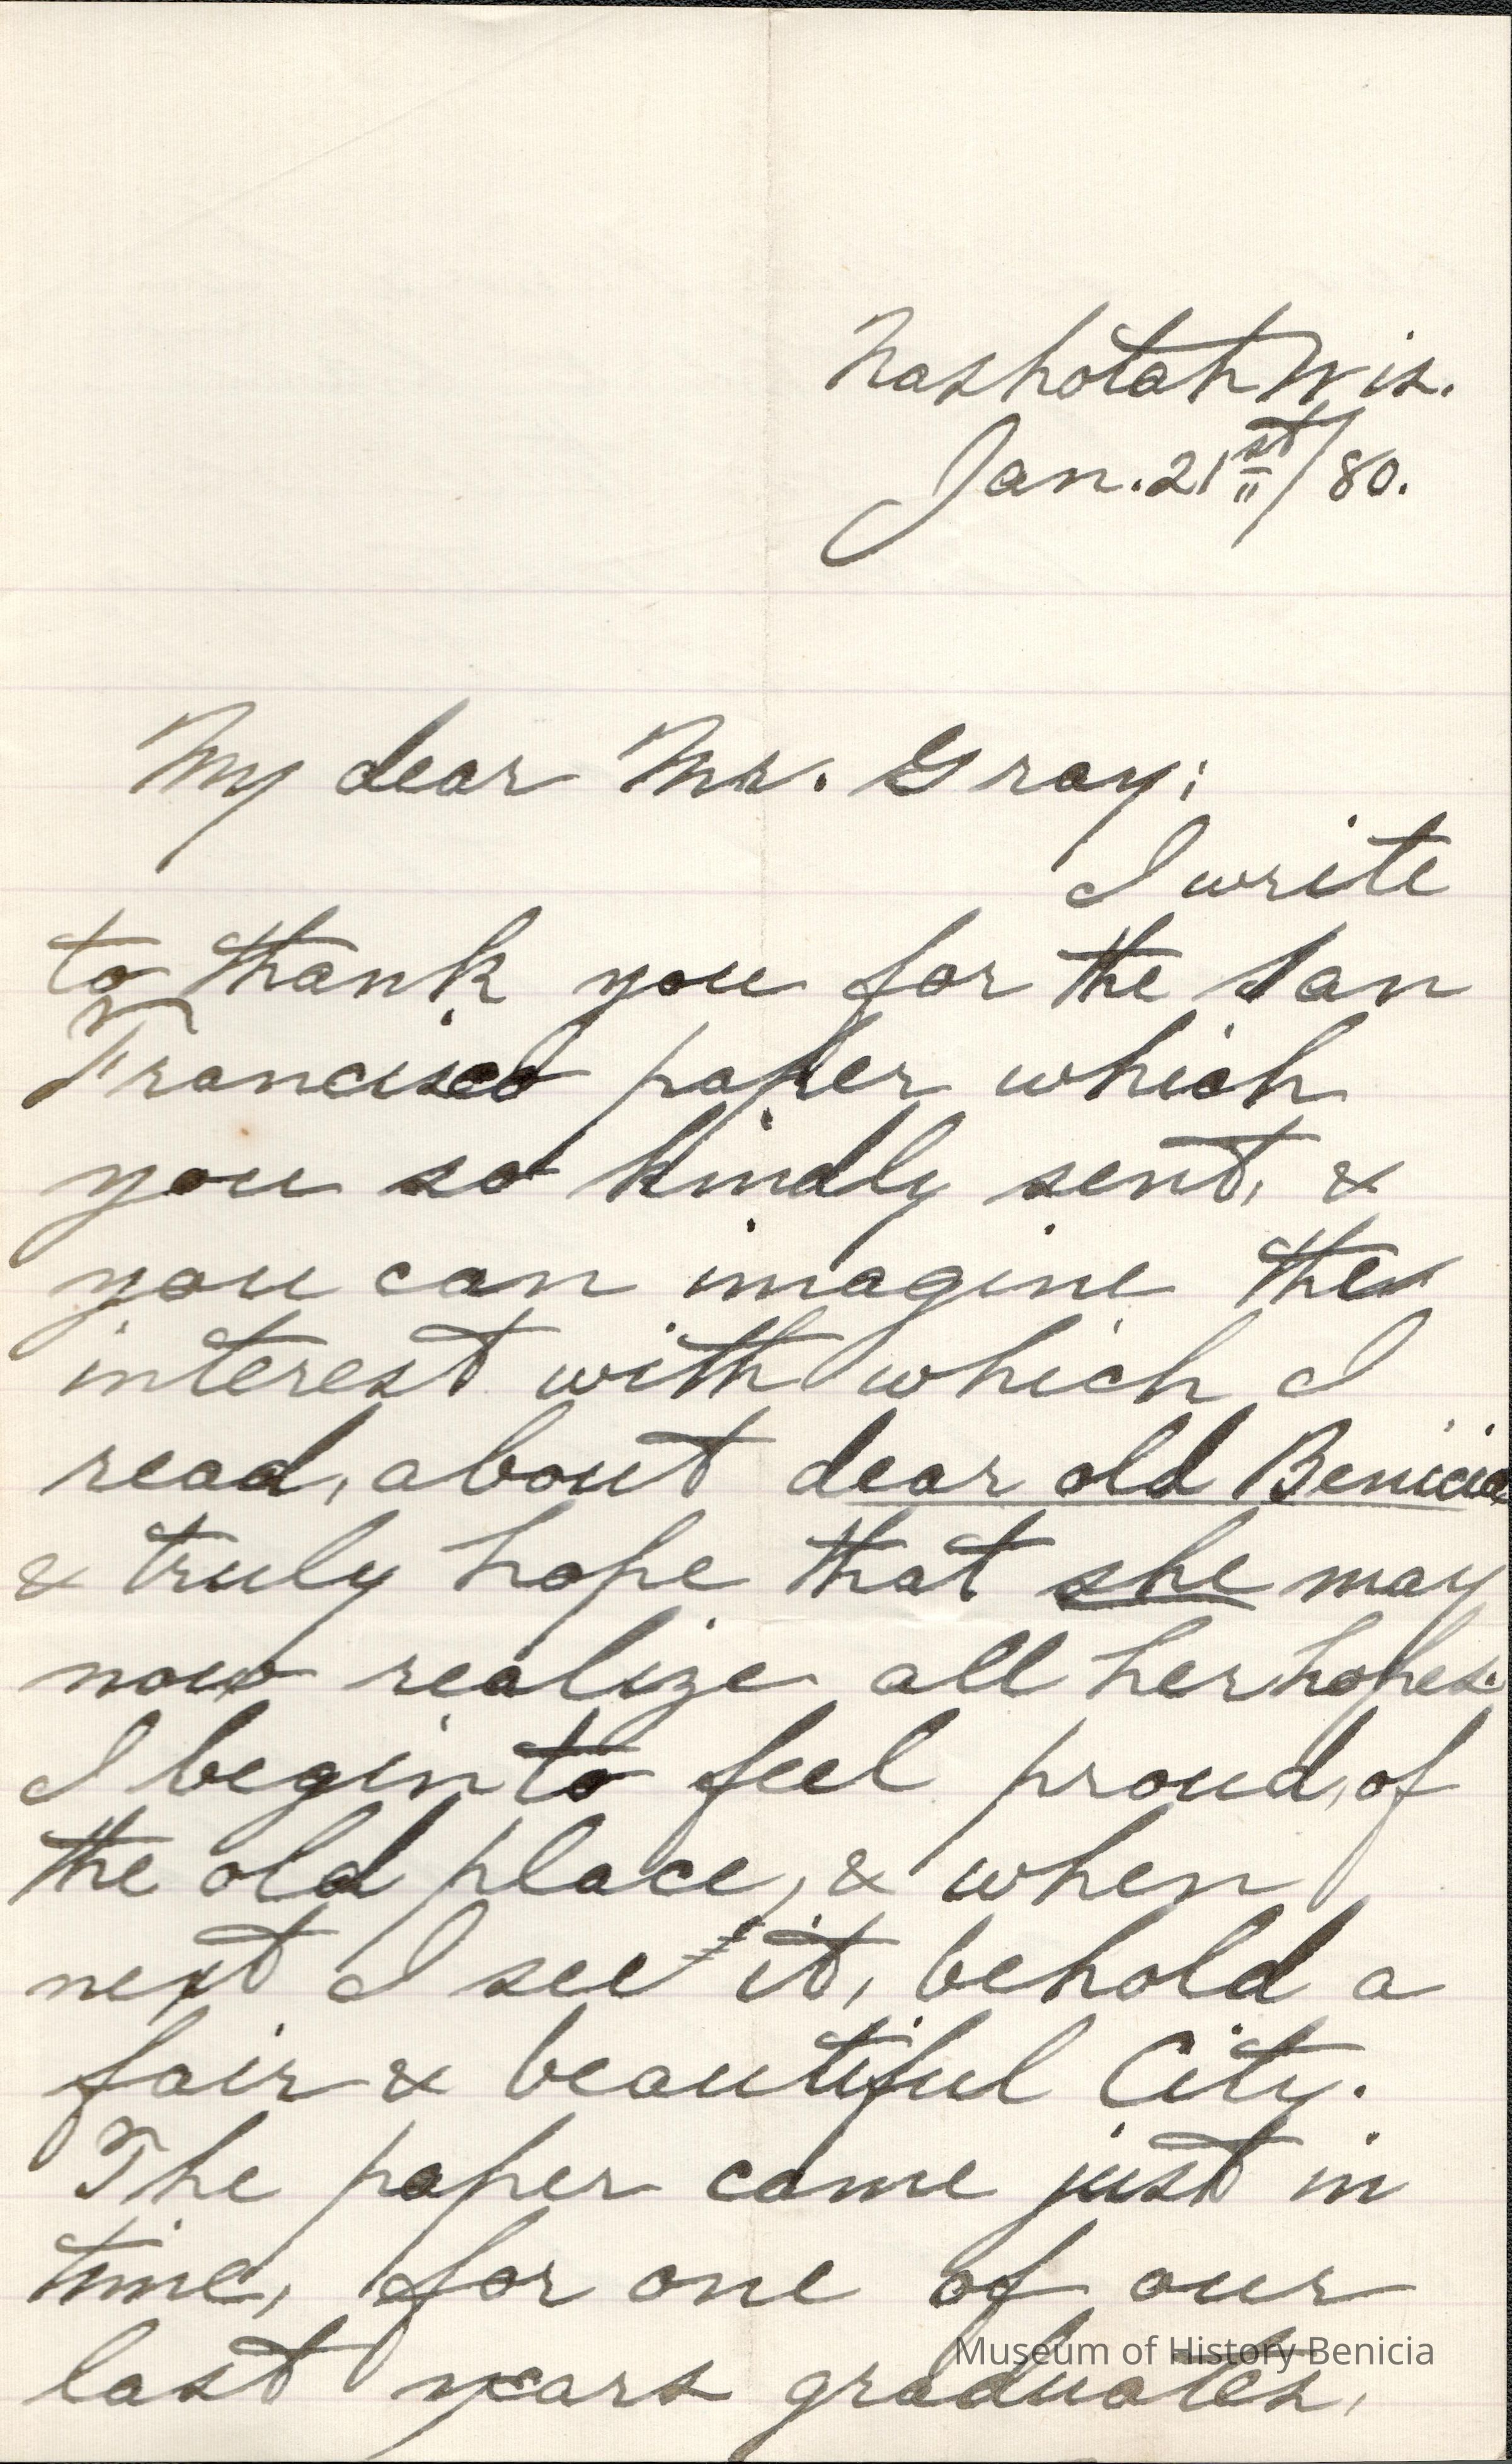 Nashotah Wis.
Jan. 21st/80.
My dear Mr. Gray;
I write
to thank you for the San
Francisco paper which
you so kindly sent, &
you can imagine the
interest with which I
read, about dear old Benicia
& truly hope that she may
now realize all her hopes.
I begin to feel proud, of
the old place, & when
next I see it, behold a
fair & beautiful City.
The paper came just in
time, for one of our
last years graduates,
Museum of History Benicia